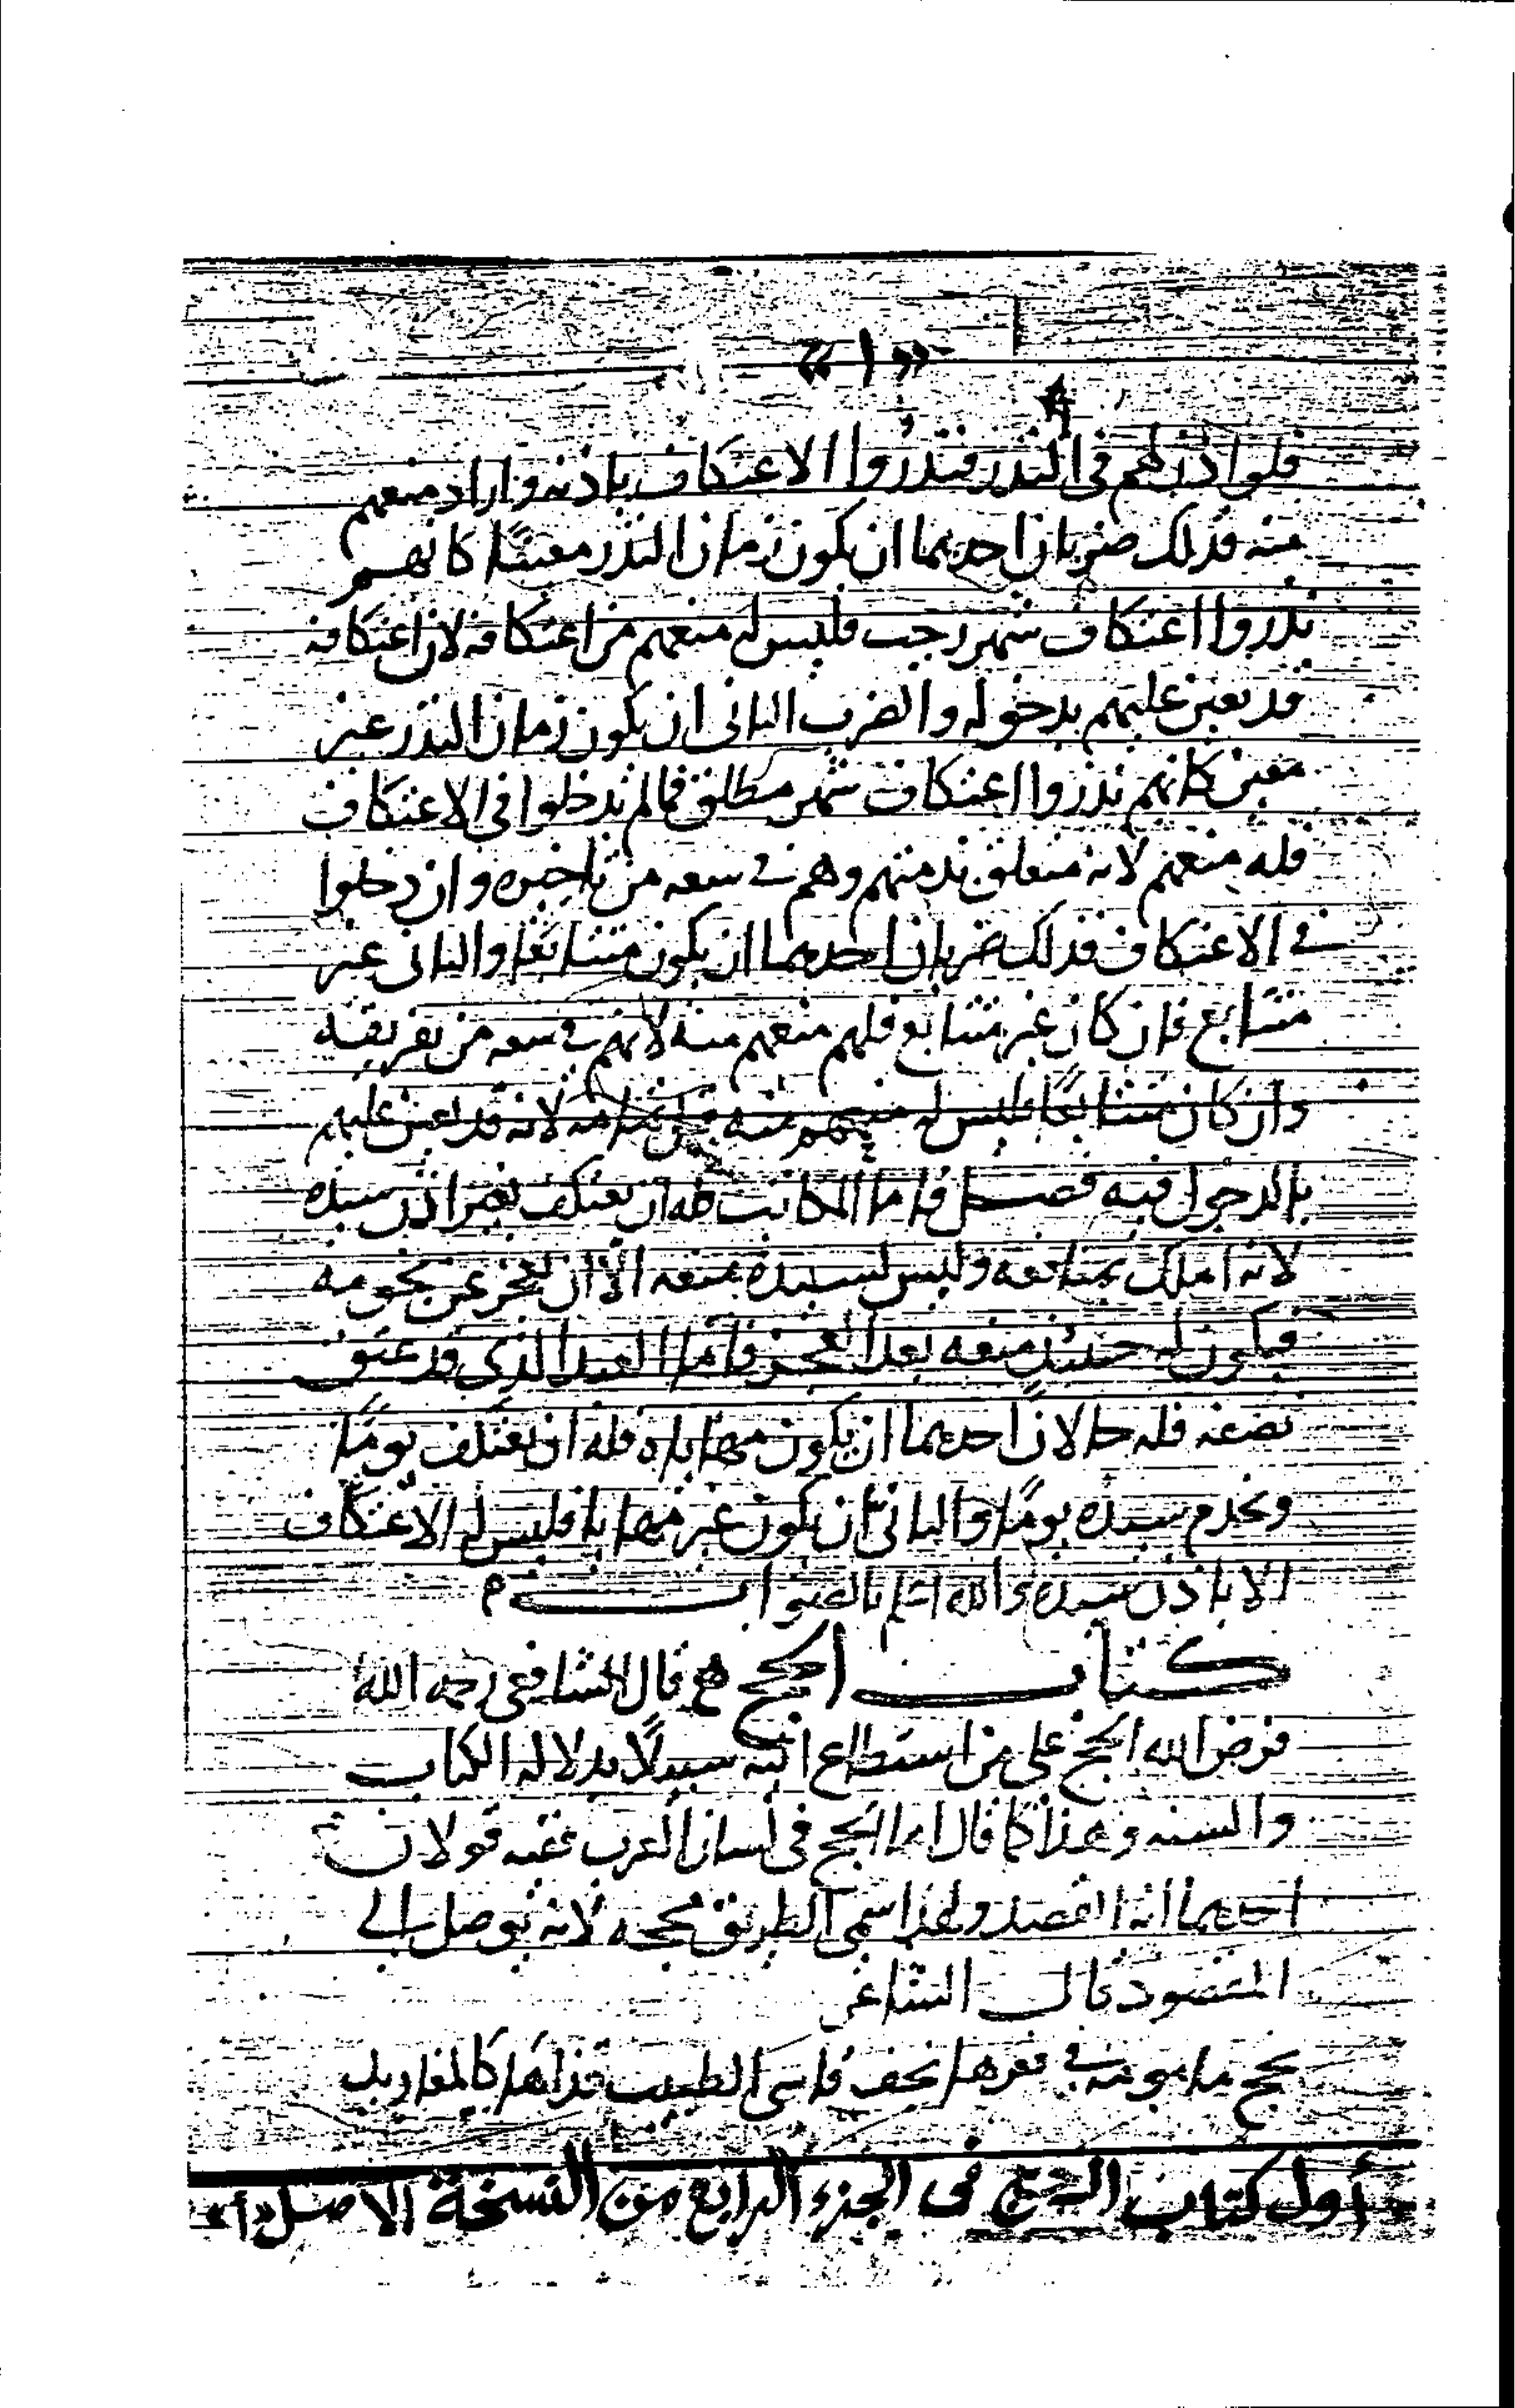 «١»
فلو اذن لهم في النذر فنذروا الاعتكاف باذنه واراد منعهم
منه فذلك ضربان احدهما ان يكون زمان النذر معينًا كانهم
نذروا اعتكاف شهر رجب فليس له منعهم من اعتكافه لان اعتكافه
قد تعين عليهم بدخوله والضرب الثاني ان يكون زمان النذر غير
معين كانهم نذروا اعتكاف شهر مطلق فما لم يدخلوا في الاعتكاف
فله منعهم لانه متعلق بذمتهم وهم في سعه من تاخيره وان دخلوا
في الاعتكاف فذلك ضربان احدهما ان يكون متتابعًا والثاني غير
متتابع فان كان غير متتابع فلهم منعهم منه لانهم في سعه من تفريقه
وان كان متتابعًا فليس له منعهم منه قبل تمامه لانه قد تعين عليهم
بالدخول فيه فصل فاما المكاتب فله ان يعتكف بغير اذن سيده
لانه املك بمنافعه وليس لسيده منعه الا ان يعجز عن نجومه
فيكون له حينئذ منعه بعد العجز فاما العبد الذي قد عتق
نصفه فله حالان احدهما ان يكون مهاياه فله ان يعتكف يومًا
ويخدم سيده يومًا والثاني ان يكون غير مهايا فليس له الاعتكاف
الا باذن سيده والله اعلم بالصواب م
كتاب الحج قال الشافعي رحمه الله
فرض الله الحج على من استطاع اليه سبيلًا بدلاله الكتاب
والسنه وهذا كما قال اما الحج في لسان العرب ففيه قولان
احدهما انه القصد ولهذا سمي الطريق محجه لانه يوصل الى
المقصود قال الشاعر
يحج مامومة في قعرها لجف فاست الطبيب قذاها كالمغاريد
أول كتاب الحج في الجزء الرابع من النسخة الاصل «أ»